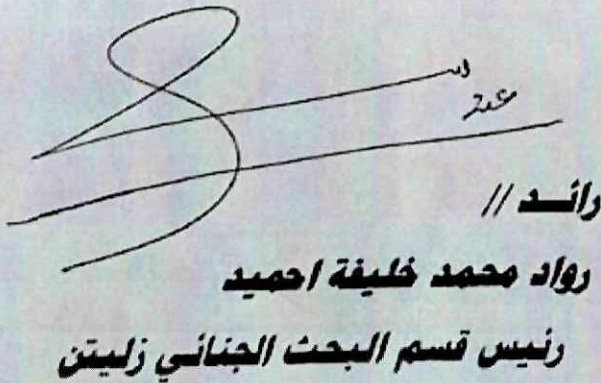 رائـــد //
رواد محمد خليفة احميد
رئيس قسم البحث الجنائي زليتن